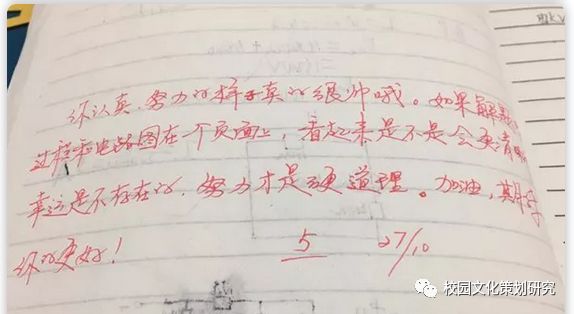 你认真、努力的样子真的很帅哦。如果解题
过程和电路图在一个页面上，看起来是不是会更清晰
幸运是不存在的，努力才是硬道理。加油，期待
你的更好！
5 27/10
校园文化策划研究